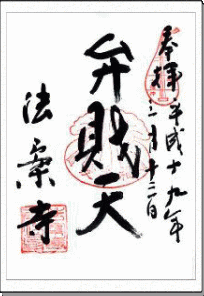 奉拝 平成十九年
二月十三日
弁財天
法乗寺